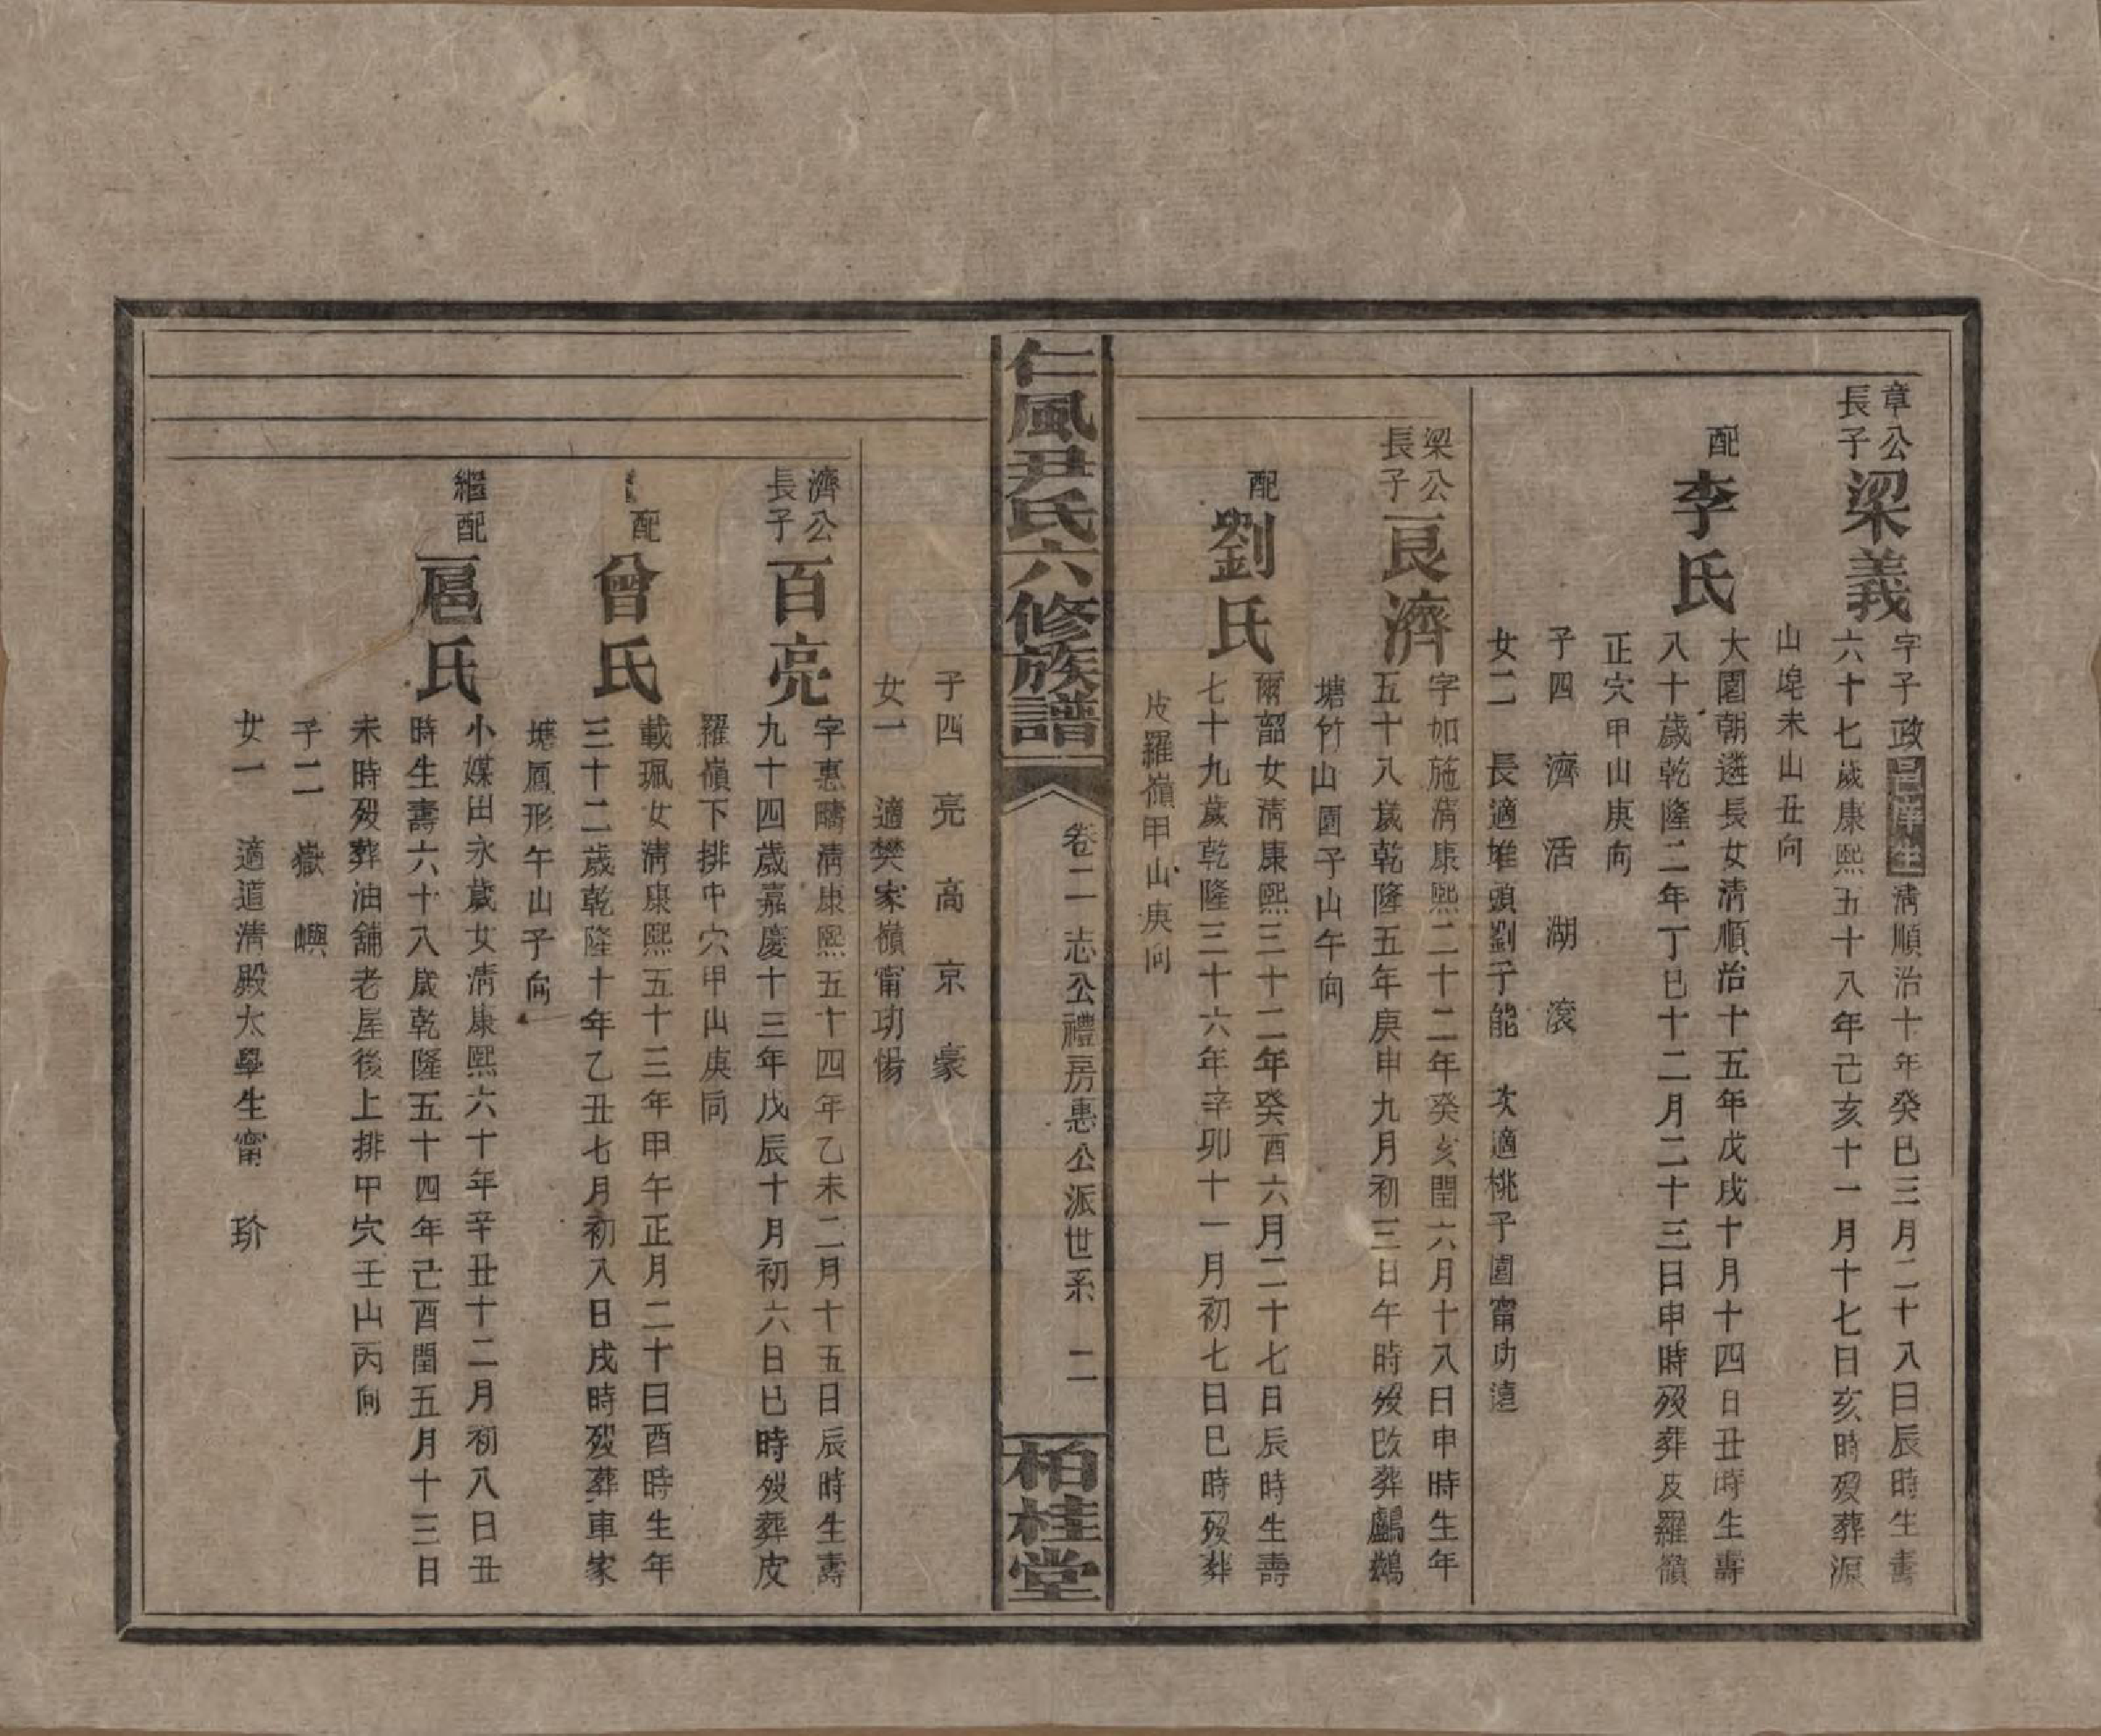 章公
長子
梁義
字子政邑庠生清順治十年癸巳三月二十八日辰時生壽
六十七歲康熙五十八年己亥十一月十七日亥時歿葬源
山埠未山丑向
配
李氏
大園朝遴長女清順治十五年戊戌十月十四日丑時生壽
八十歲乾隆二年丁巳十二月二十三日申時歿葬皮羅嶺
正穴甲山庚向
子四 濟 活 湖 滾
女二 長適堆頭劉子能 次適桃子園甯功遠
梁公
長子
良濟
字如施清康熙二十二年癸亥閏六月十八日申時生年
五十八歲乾隆五年庚申九月初三日午時歿改葬鸕鷀
塘竹山園子山午向
配
劉氏
爾韶女清康熙三十二年癸酉六月二十七日辰時生壽
七十九歲乾隆三十六年辛卯十一月初七日巳時歿葬
皮羅嶺甲山庚向
仁風尹氏六修族譜
卷二 志公禮房惠公派世系 二
柏桂堂
子四 亮 高 京 豪
女一 適樊家嶺甯功惕
濟公
長子
百亮
字惠疇清康熙五十四年乙未二月十五日辰時生壽
九十四歲嘉慶十三年戊辰十月初六日巳時歿葬皮
羅嶺下排中穴甲山庚向
配
曾氏
載珮女清康熙五十三年甲午正月二十日酉時生年
三十二歲乾隆十年乙丑七月初八日戌時歿葬車家
塘鳳形午山子向
繼配
扈氏
小媒田永歲女清康熙六十年辛丑十二月初八日丑
時生壽六十八歲乾隆五十四年己酉閏五月十三日
未時歿葬油舖老屋後上排中穴壬山丙向
子二 嶽 嶼
女一 適道清殿太學生甯 玠